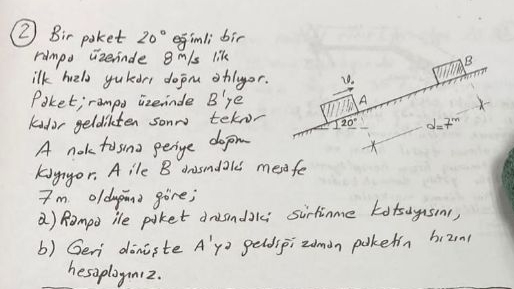 ② Bir paket 20° eğimli bir
rampa üzerinde 8 m/s lik
ilk hızla yukarı doğru atılıyor.
Paket; rampa üzerinde B'ye
kadar geldikten sonra tekrar
A noktasına geriye doğru
kayıyor. A ile B arasındaki mesafe
7m. olduğuna göre;
a) Rampa ile paket arasındaki sürtünme katsayısını,
b) Geri dönüşte A'ya geldiği zaman paketin hızını
hesaplayınız.
V₀
A
B
20°
d=7m